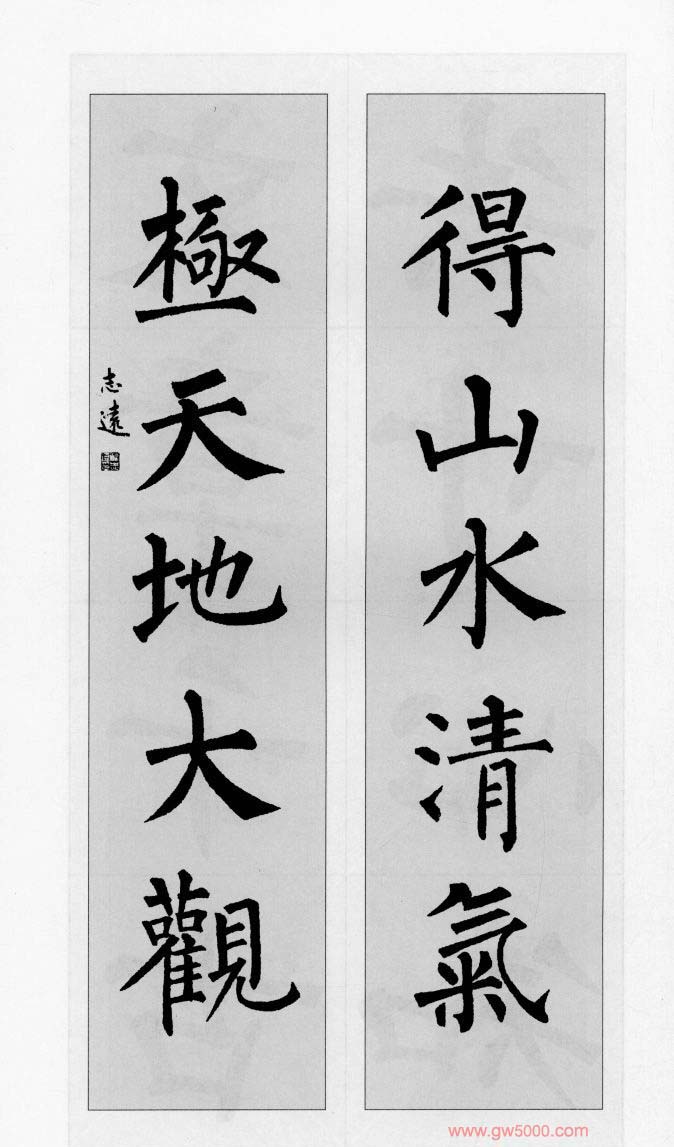 得山水清氣
極天地大觀
志遠
www.gw5000.com